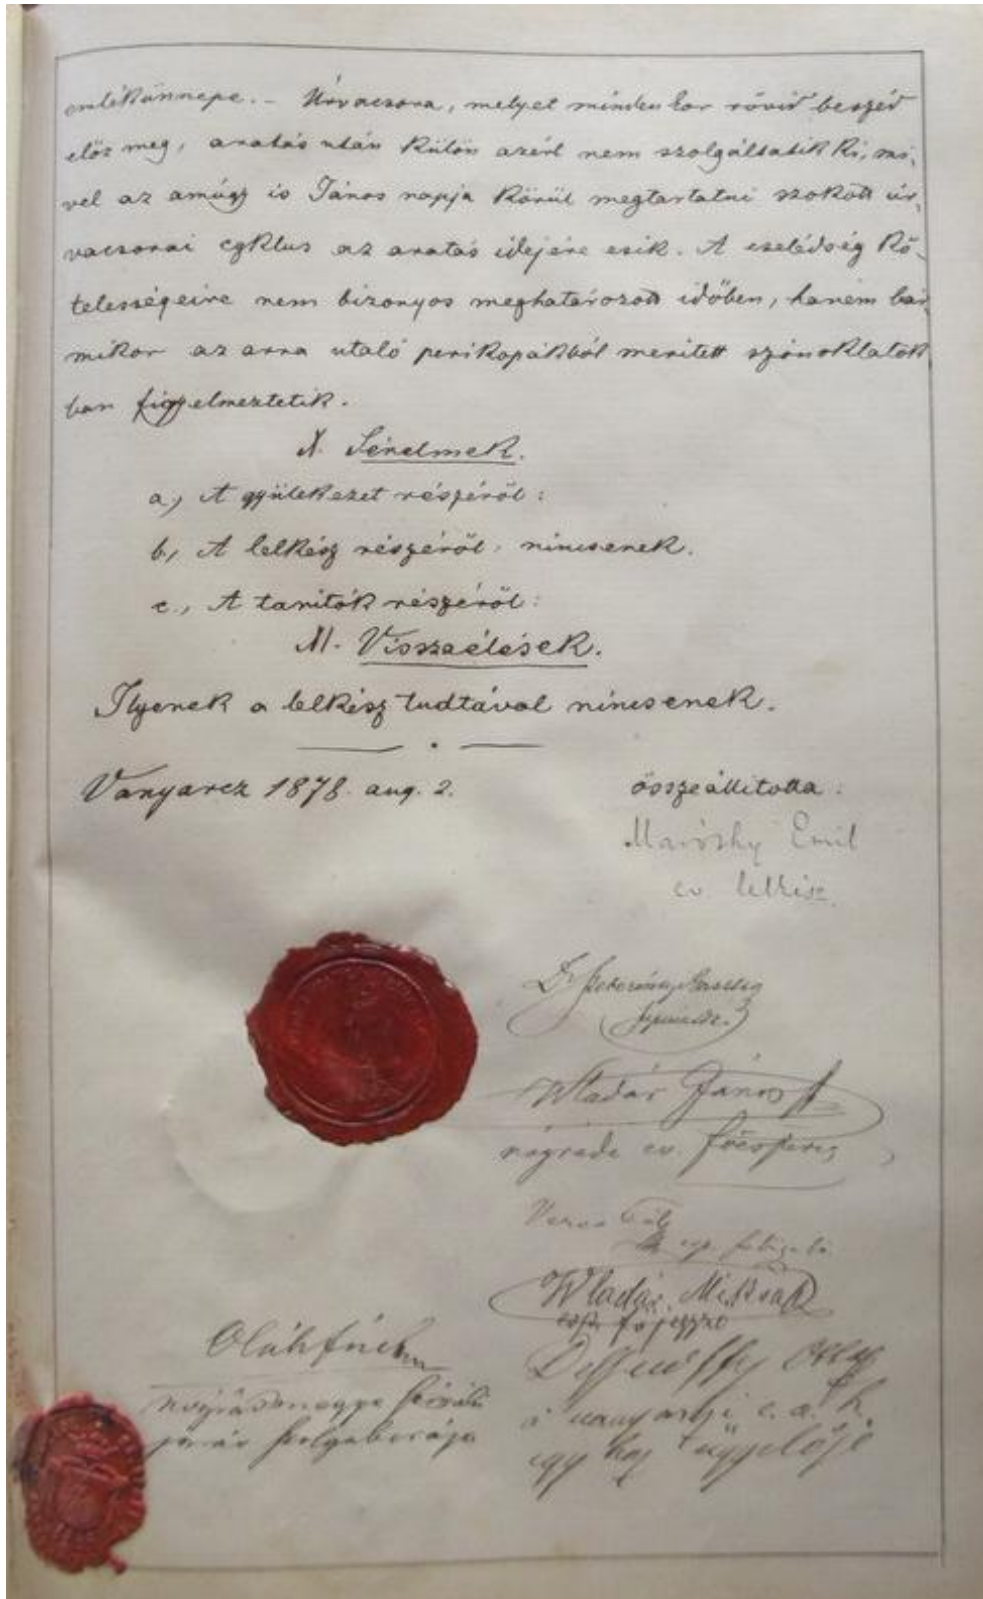 emlékünnepe. — Úrvacsora, melyet minden kor rövid beszéd
előz meg, aratás után külön azért nem szolgáltatik ki, mi-
vel az amúgy is János napja körül megtartatni szokott úr-
vacsorai cyklus az aratás idejére esik. A cselédség kö-
telességeire nem bizonyos meghatározott időben, hanem bár-
mikor az arra utaló perikopákból merített szónoklatok
ban figyelmeztetik.
X. Sérelmek.
a., A gyülekezet részéről:
b., A lelkész részéről: nincsenek.
c., A tanítók részéről:
XI. Visszaélések.
Ilyenek a lelkész tudtával nincsenek.
Vanyarcz 1878. aug. 2.
összeállította:
Maróthy Emil
ev. lelkész
Dr
Wladár János
nógrádi ev. főesperes
Veres Pál
esp. felügyelő
Wladár Miksa
esp. főjegyző
Dessewffy
a vanyarczi e. a. h.
egyház függelője
Oláh
nógrádmegye sziráki
járás szolgabirája